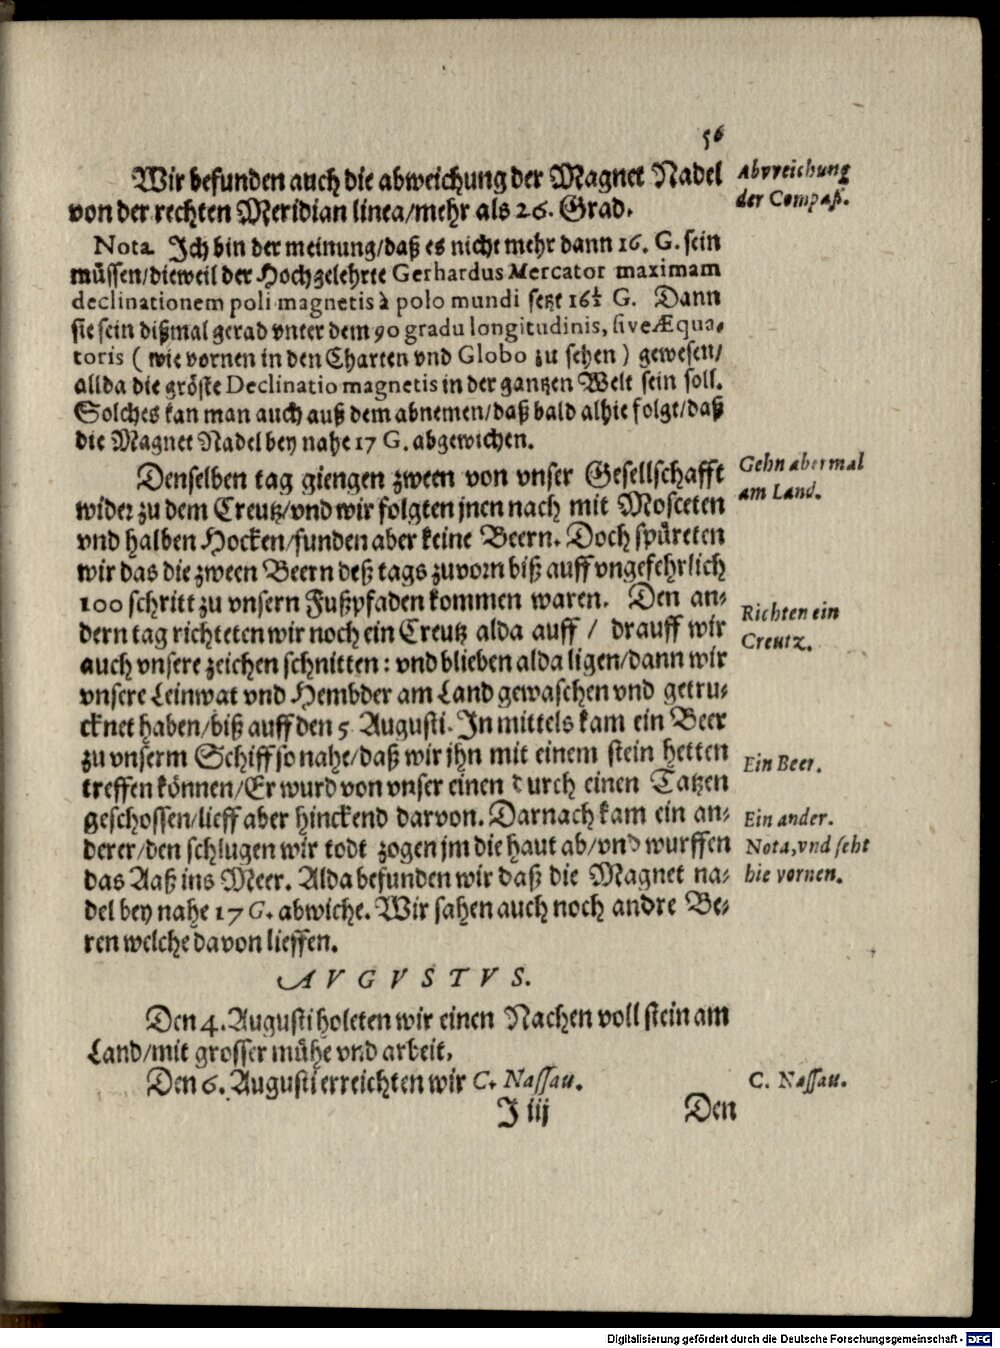 56
Wir befunden auch die abweichung der Magnet Nadel
von der rechten Meridian linea/mehr als 26. Grad.
Abvveichung
der Compaß.
Nota. Ich bin der meinung/daß es nicht mehr dann 16. G. sein
müssen/dieweil der Hochgelehrte Gerhardus Mercator maximam
declinationem poli magnetis à polo mundi setzt 16½ G. Dann
sie sein dißmal gerad vnter dem 90 gradu longitudinis, sive Æqua-
toris ( wie vornen in den Charten vnd Globo zu sehen ) gewesen/
allda die gröste Declinatio magnetis in der gantzen Welt sein soll.
Solches kan man auch auß dem abnemen/daß bald alhie folgt/daß
die Magnet Nadel bey nahe 17 G. abgewichen.
Denselben tag giengen zween von vnser Gesellschafft
wider zu dem Creutz/vnd wir folgten jnen nach mit Mosceten
vnd halben Hocken/funden aber keine Beern. Doch spüreten
wir das die zween Beern deß tags zuvorn biß auff vngefehrlich
100 schritt zu vnsern Fußpfaden kommen waren. Den an-
dern tag richteten wir noch ein Creutz alda auff / drauff wir
auch vnsere zeichen schnitten: vnd blieben alda ligen/dann wir
vnsere Leinwat vnd Hembder am Land gewaschen vnd getru-
cknet haben/biß auff den 5. Augusti. In mittels kam ein Beer
zu vnserm Schiff so nahe/daß wir jhn mit einem stein hetten
treffen können/Er wurd von vnser einen durch einen Tatzen
geschossen/lieff aber hinckend darvon. Darnach kam ein an-
derer/den schlugen wir todt zogen jm die haut ab/vnd wurffen
das Aaß ins Meer. Alda befunden wir daß die Magnet na-
del bey nahe 17 G. abwiche. Wir sahen auch noch andre Be-
ren welche davon lieffen.
Gehn abermal
am Land.
Richten ein
Creutz.
Ein Beer.
Ein ander.
Nota, vnd seht
hie vornen.
AVGVSTVS.
Den 4. Augusti holeten wir einen Nachen voll stein am
Land/mit grosser mühe vnd arbeit.
Den 6. Augusti erreichten wir C. Nassau.
C. Nassau.
I iij
Den
Digitalisierung gefördert durch die Deutsche Forschungsgemeinschaft - DFG